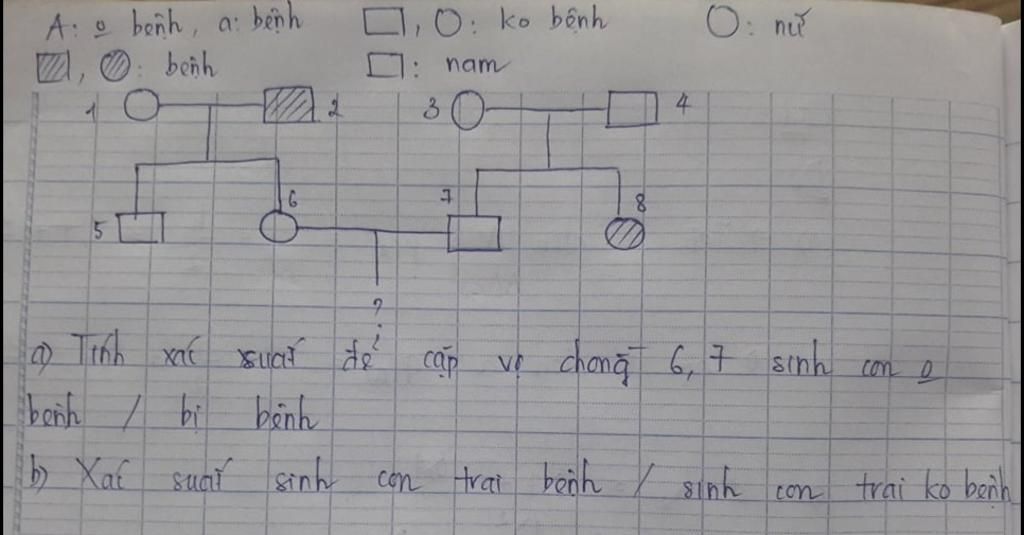 A: o bệnh, a: bệnh □, ○: ko bệnh ○: nữ
▨, ◍: bệnh □: nam
1 2 3 4
5 6 7 8
?
a) Tính xác suất để cặp vợ chồng 6, 7 sinh con o
bệnh / bị bệnh
b) Xác suất sinh con trai bệnh / sinh con trai ko bệnh